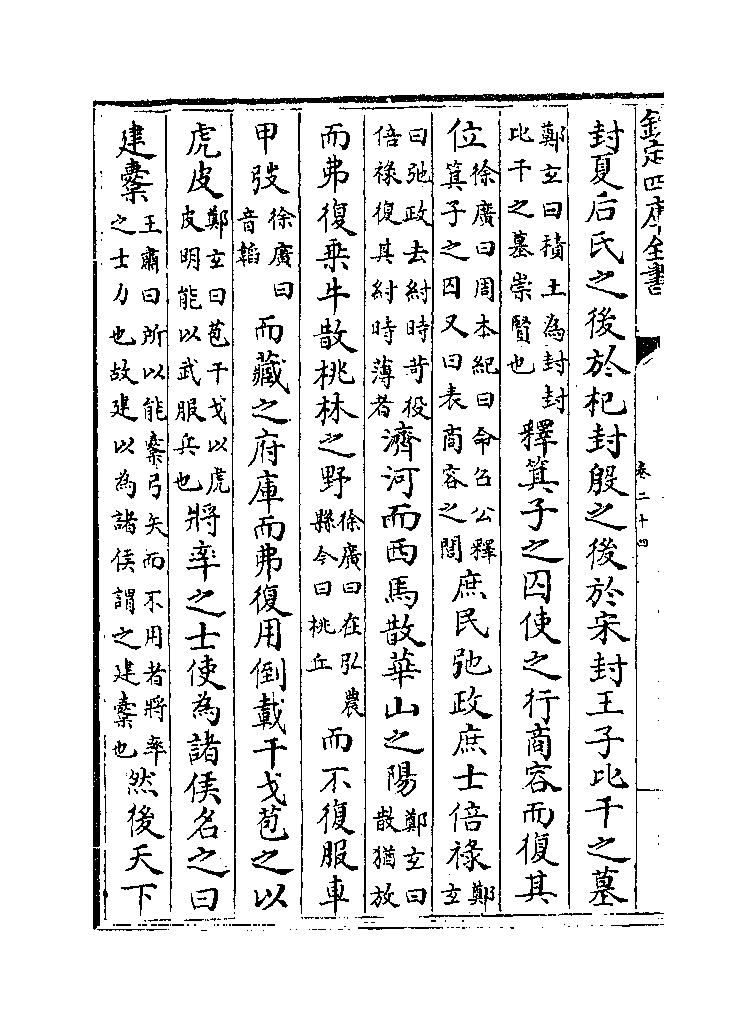 欽定四庫全書
卷二十四
封夏后氏之後於杞封殷之後於宋封王子比干之墓
鄭玄曰積土為封封
比干之墓崇賢也
釋箕子之囚使之行商容而復其
位
徐廣曰周本紀曰命召公釋
箕子之囚又曰表商容之閭
庶民弛政庶士倍祿
鄭玄
曰弛政去紂時苛役
倍祿復其紂時薄者
濟河而西馬散華山之陽
鄭玄曰
散猶放
而弗復乗牛散桃林之野
徐廣曰在弘農
縣今曰桃丘
而不復服車
甲弢
徐廣曰
音韜
而藏之府庫而弗復用倒載干戈苞之以
虎皮
鄭玄曰苞干戈以虎
皮明能以武服兵也
將率之士使為諸侯名之曰
建櫜
王肅曰所以能櫜弓矢而不用者將率
之士力也故建以為諸侯謂之建櫜也
然後天下